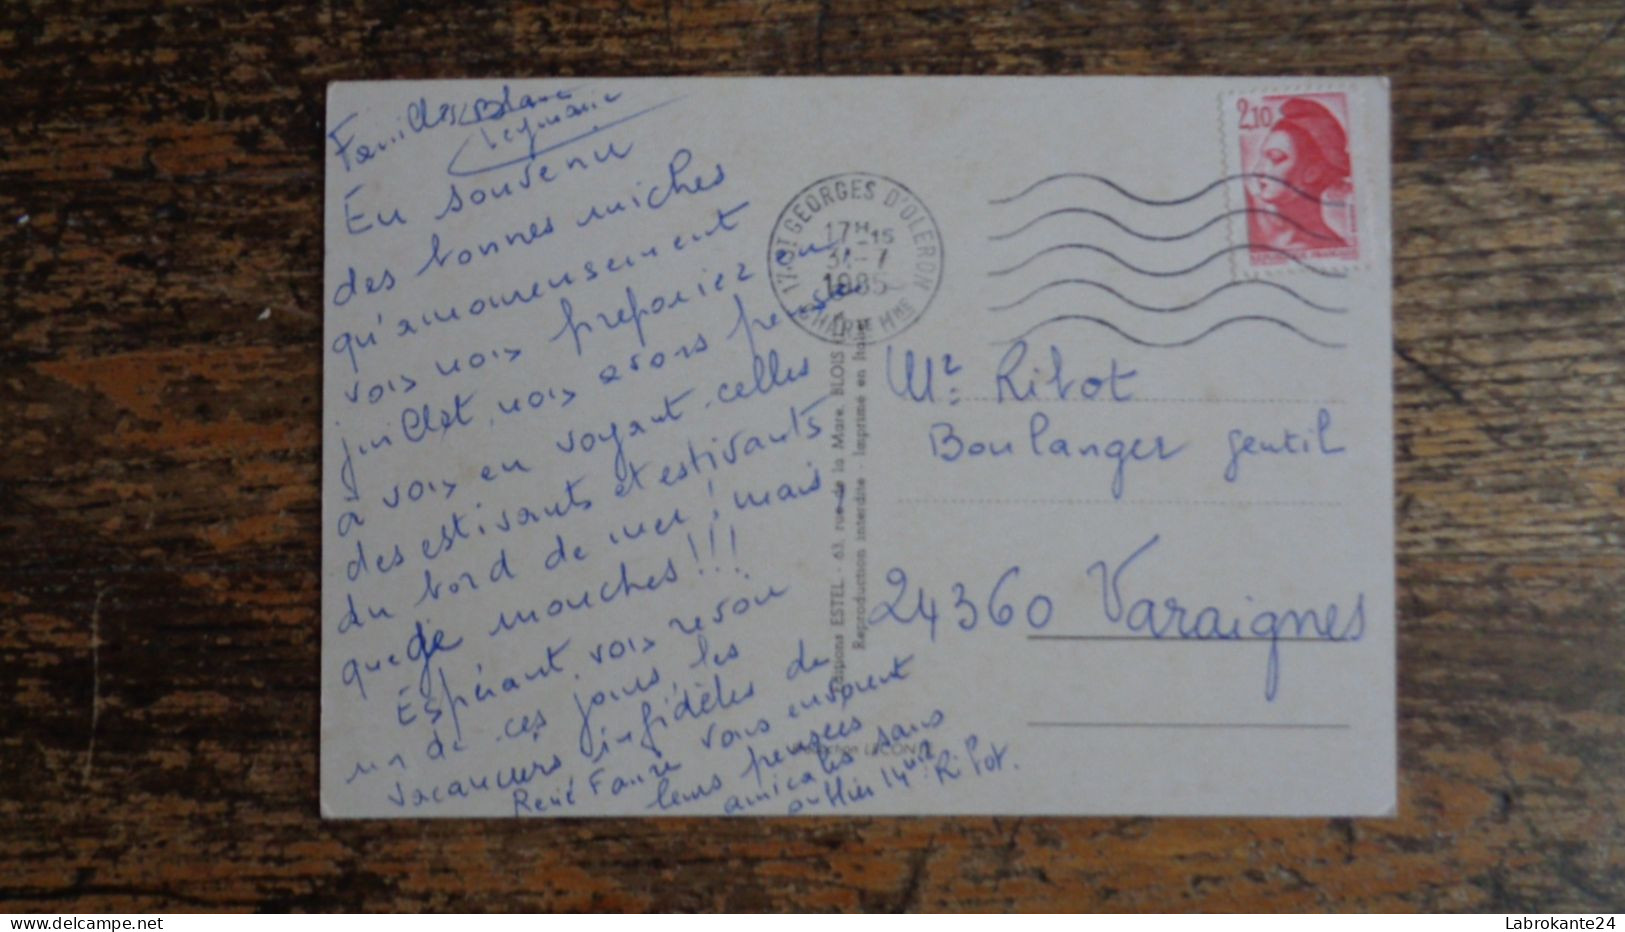 Familles Blanc
Leymarie
En souvenir
des bonnes miches
qu'amoureusement
vous nous prépariez en
juillet, nous avons pensé
à vous en voyant celles
des estivants et estivants
du bord de mer ; mais
que de mouches !!!
Espérant vous revoir
un de ces jours, les
vacanciers infidèles de
René Faure vous envoient
leurs pensées
amicales sans
oublier Mme Ribot.
17 ST GEORGES D'OLERON
17H15
31-7
1985
CHARTE MME
2,10
Mr. Ribot
Boulanger gentil
24360 Varaignes
ESTEL - 63, rue de la Mare. BLOIS
Reproduction interdite - Imprimé en Italie
Labrokante24